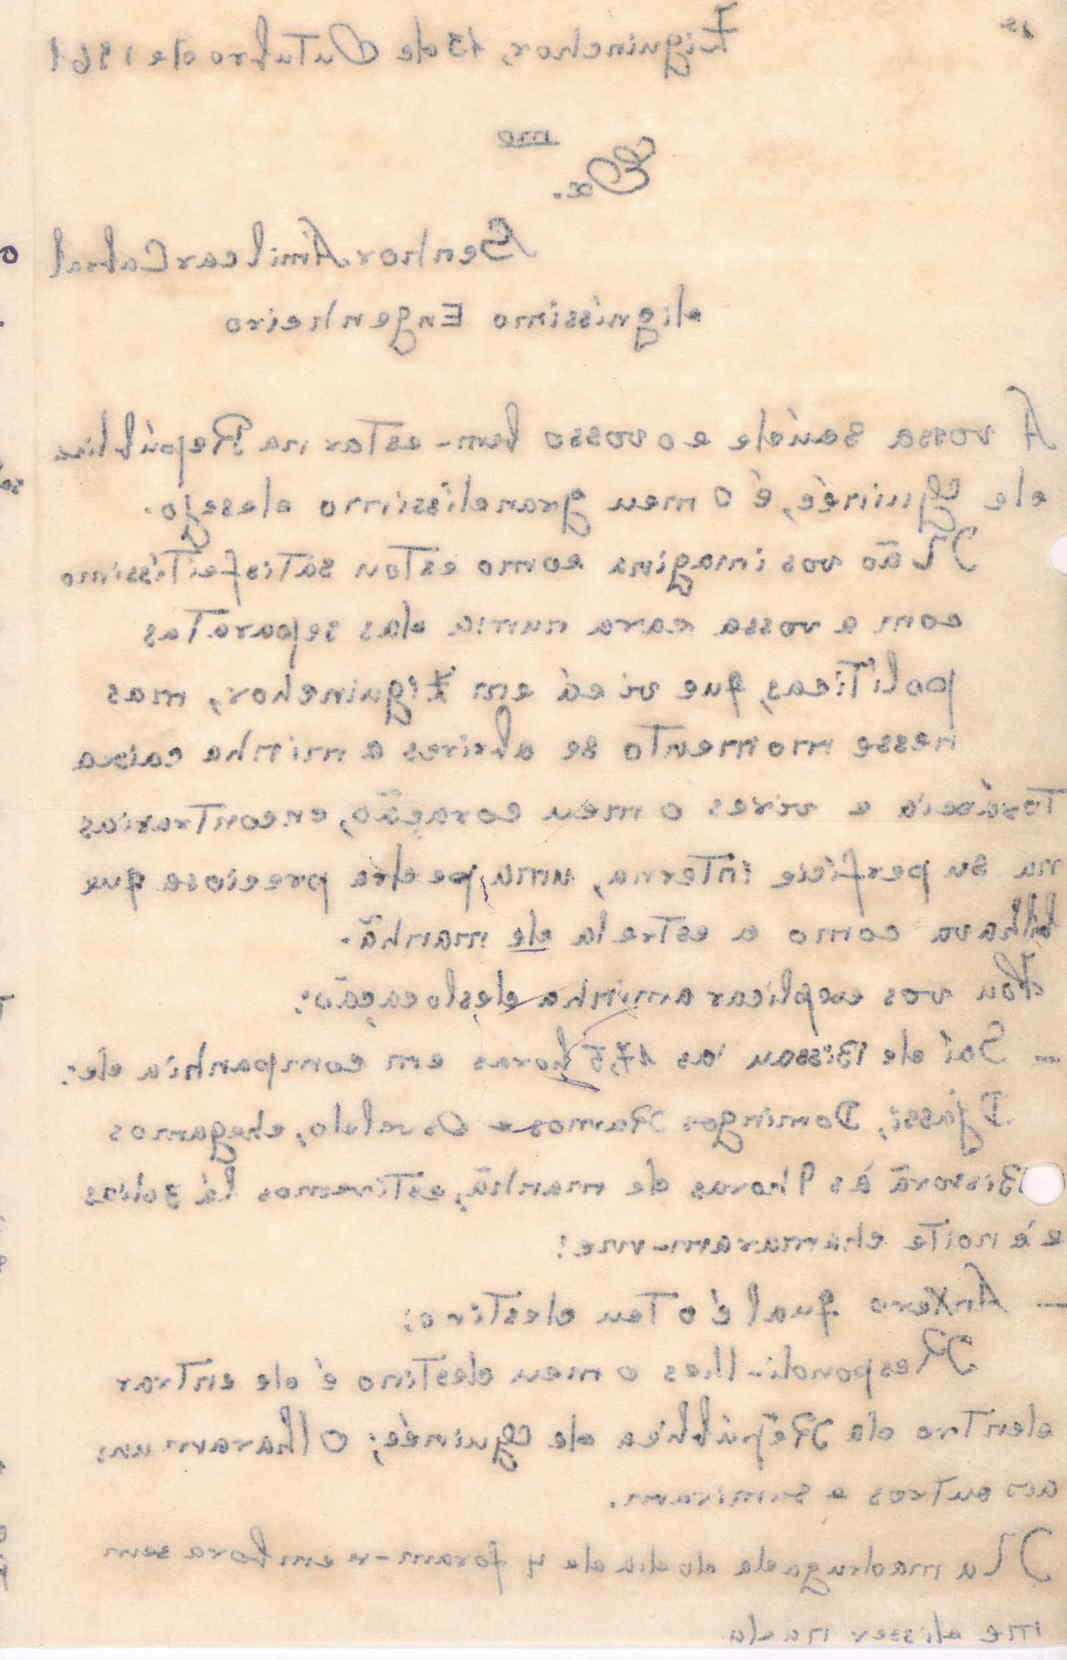 Ziguinchor, 13 de Outubro de 1961
mo
Ex.
Senhor Amilcar Cabral
digníssimo Engenheiro
A vossa saúde e o vosso bem-estar na República
de Guinée, é o meu grandessíssimo desejo.
Não vos imagina como estou satisfeitíssimo
com a vossa cara numa das separatas
políticas, que vi cá em Ziguinchor, mas
nesse momento se abrires a minha caixa
toráxcia e vires o meu coração, encontrarias
na superfície interna, uma pedra preciosa que
bilhava como a estrela de manhã.
Vou vos explicar a minha deslocação:
— Saí de Bissau às 17,5 horas em companhia de:
Djassi, Domingos Ramos e Osvaldo, chegamos
Bissorã às 9 horas de manhã, estivemos lá 3 dias
e à noite chamaram-me:
— Antero qual é o teu destino;
Respondi-lhes o meu destino é de entrar
dentro da República de Guinée; Olharam uns
aos outros e sumiram.
Na madrugada do dia de 4 foram-se embora sem
me disser nada